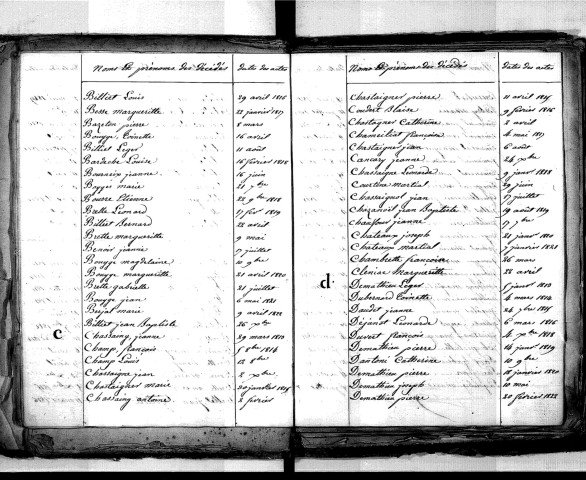 Noms Et prénoms des Décédés Dates des actes
Billiet Louis 29 avril 1816
Besse margueritte 22 janvier 1817
Bazeton pierre 8 mars
Bouyge Toinette 16 avril
Billiet Leger 11 août
Bardeche Louise 16 février 1818
jeanne 16 juin
Bouyge marie 21 7bre
Bourre Etienne 1818
Brette Léonard 17 fev 1819
Billiet Bernard 22 avril
Brette margueritte 9 mai
Benoir jeanne 7 juillet
Bouyge magdelaine 10 9bre
Bouyge margueritte 21 avril 1820
Brette gabrielle 21 juillet
Bouyge jean 6 mai 1821
marie 9 avril 1822
Billiet jean Baptiste 26 Xbre
c
Chassaing jeanne 29 mars 1813
Champ françois 5 8bre 1814
Champ Louis 12 8bre
Chassaigne jean 2 Xbre
Chastaigner marie 20 janvier 1815
Chassaing antoine 2 février
Noms Et prénoms des Décédés Dates des actes
Chastaigner pierre 11 avril 1815
Coudert Blaise 9 février 1816
Chastagner Catherine 2 avril
françoise 4 mai 1817
Chastaigner jean 6 août
Cancary jeanne 24 Xbre
Chassaigne Léonarde 9 janv 1818
Courtine martial 29 juin
Chassaignol jean 17 juillet
jean Baptiste 19 août 1819
Chauffour jeanne 17 7bre
Chateaux joseph 21 janv 1820
Chateaux martial 7 janvier 1821
Chambrette françoise 26 mars
margueritte 22 avril
d.
Demathieu Leger 5 janv 1813
Dubernard Toinette 4 mars 1814
Daudet jeanne 24 1815
Dejanot Léonarde 6 mars 1816
Duvert françois 4 Xbre 1818
Demathieu pierre 14 janv 1819
Dantoni Catherine 10 9bre
Demathieu pierre 18 janvier 1820
Demathieu joseph 10 mai
Demathieu pierre 20 février 1822